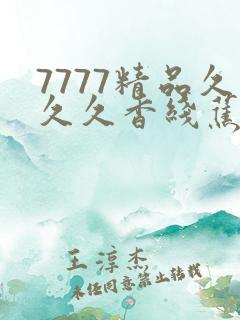 7777精品久
久久香线蕉
王淳杰
未经同意禁止转载